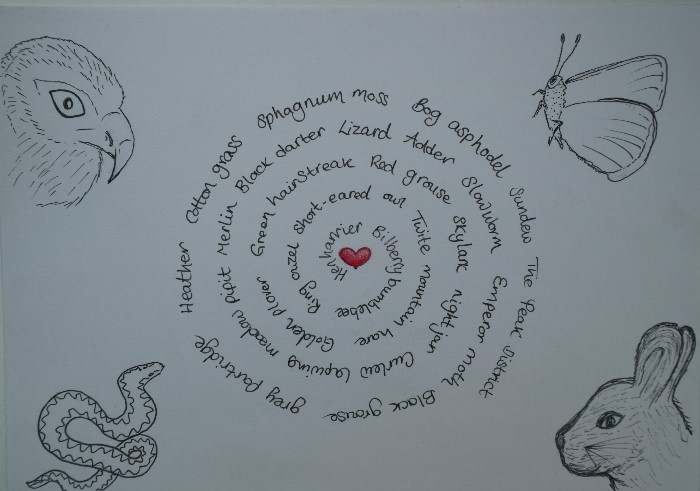 Hen harrier Bilberry bumblebee
Ring ouzel short-eared owl Twite mountain hare Golden plover
Green hairstreak Red grouse skylark nightjar Curlew Lapwing meadow pipit
Merlin Black darter Lizard Adder Slowworm Emperor moth Black grouse grey Partridge
Heather Cotton grass Sphagnum moss Bog asphodel Sundew The Peak District